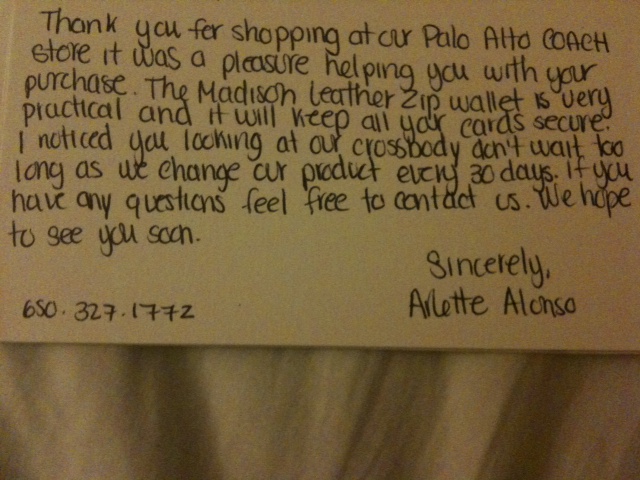 Thank you for shopping at our Palo Alto COACH
store it was a pleasure helping you with your
purchase. The Madison Leather Zip wallet is very
practical and it will keep all your cards secure.
I noticed you looking at our crossbody don't wait too
long as we change our product every 30 days. If you
have any questions feel free to contact us. We hope
to see you soon.
Sincerely,
Arlette Alonso
650.327.1772